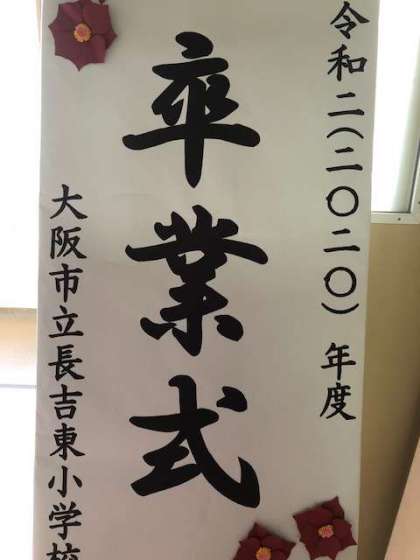 令和二(二〇二〇) 年度
卒業式
大阪市立長吉東小学校